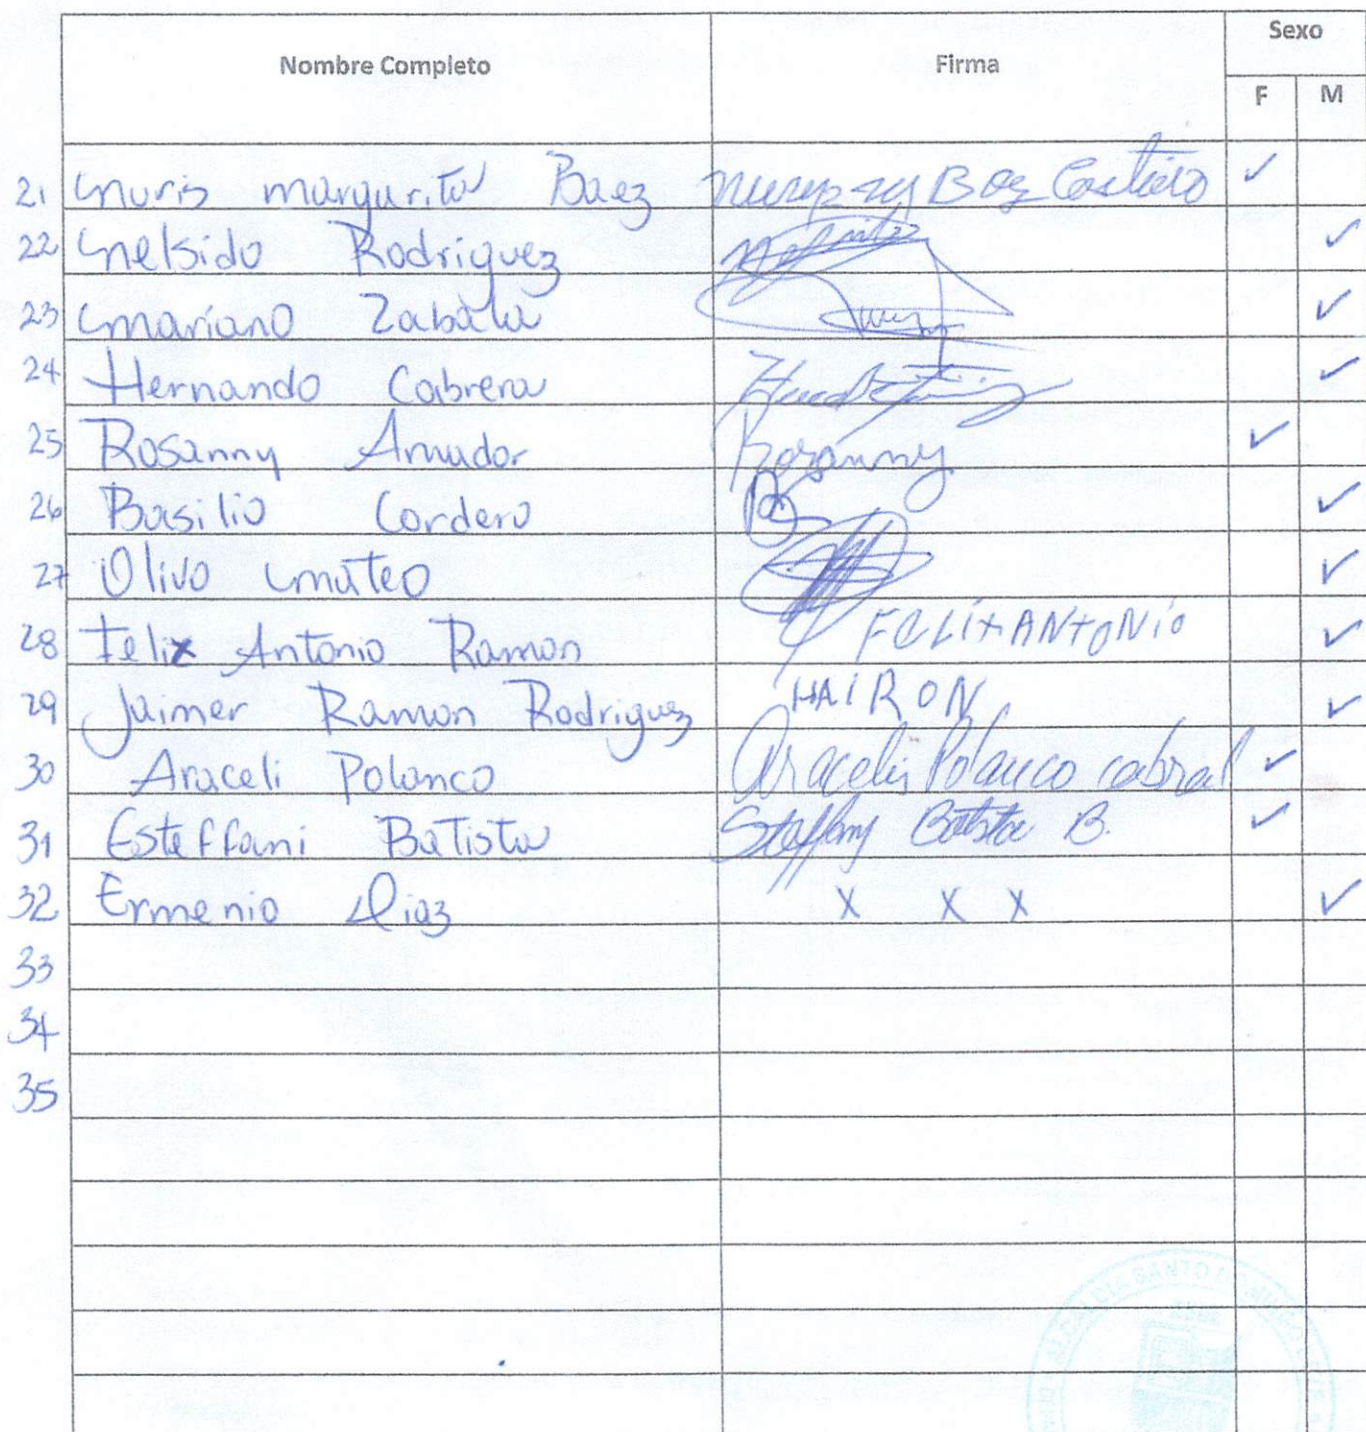 Nombre Completo Firma Sexo
F M
21 Nuris Margarita Baez ✓
22 Nelsido Rodriguez ✓
23 Mariano Zabala ✓
24 Hernando Cabrera ✓
25 Rosanny Amador Rosanny ✓
26 Basilio Cordero ✓
27 Olivo Mateo ✓
28 Felix Antonio Ramon FELIX ANTONIO ✓
29 Jaimer Ramon Rodriguez HAIRON ✓
30 Araceli Polanco Aracelis Polanco cabral ✓
31 Esteffani Batista Steffany Batista B. ✓
32 Ermenio Diaz X X X ✓
33
34
35
ALCALDIA SANTO DOMINGO